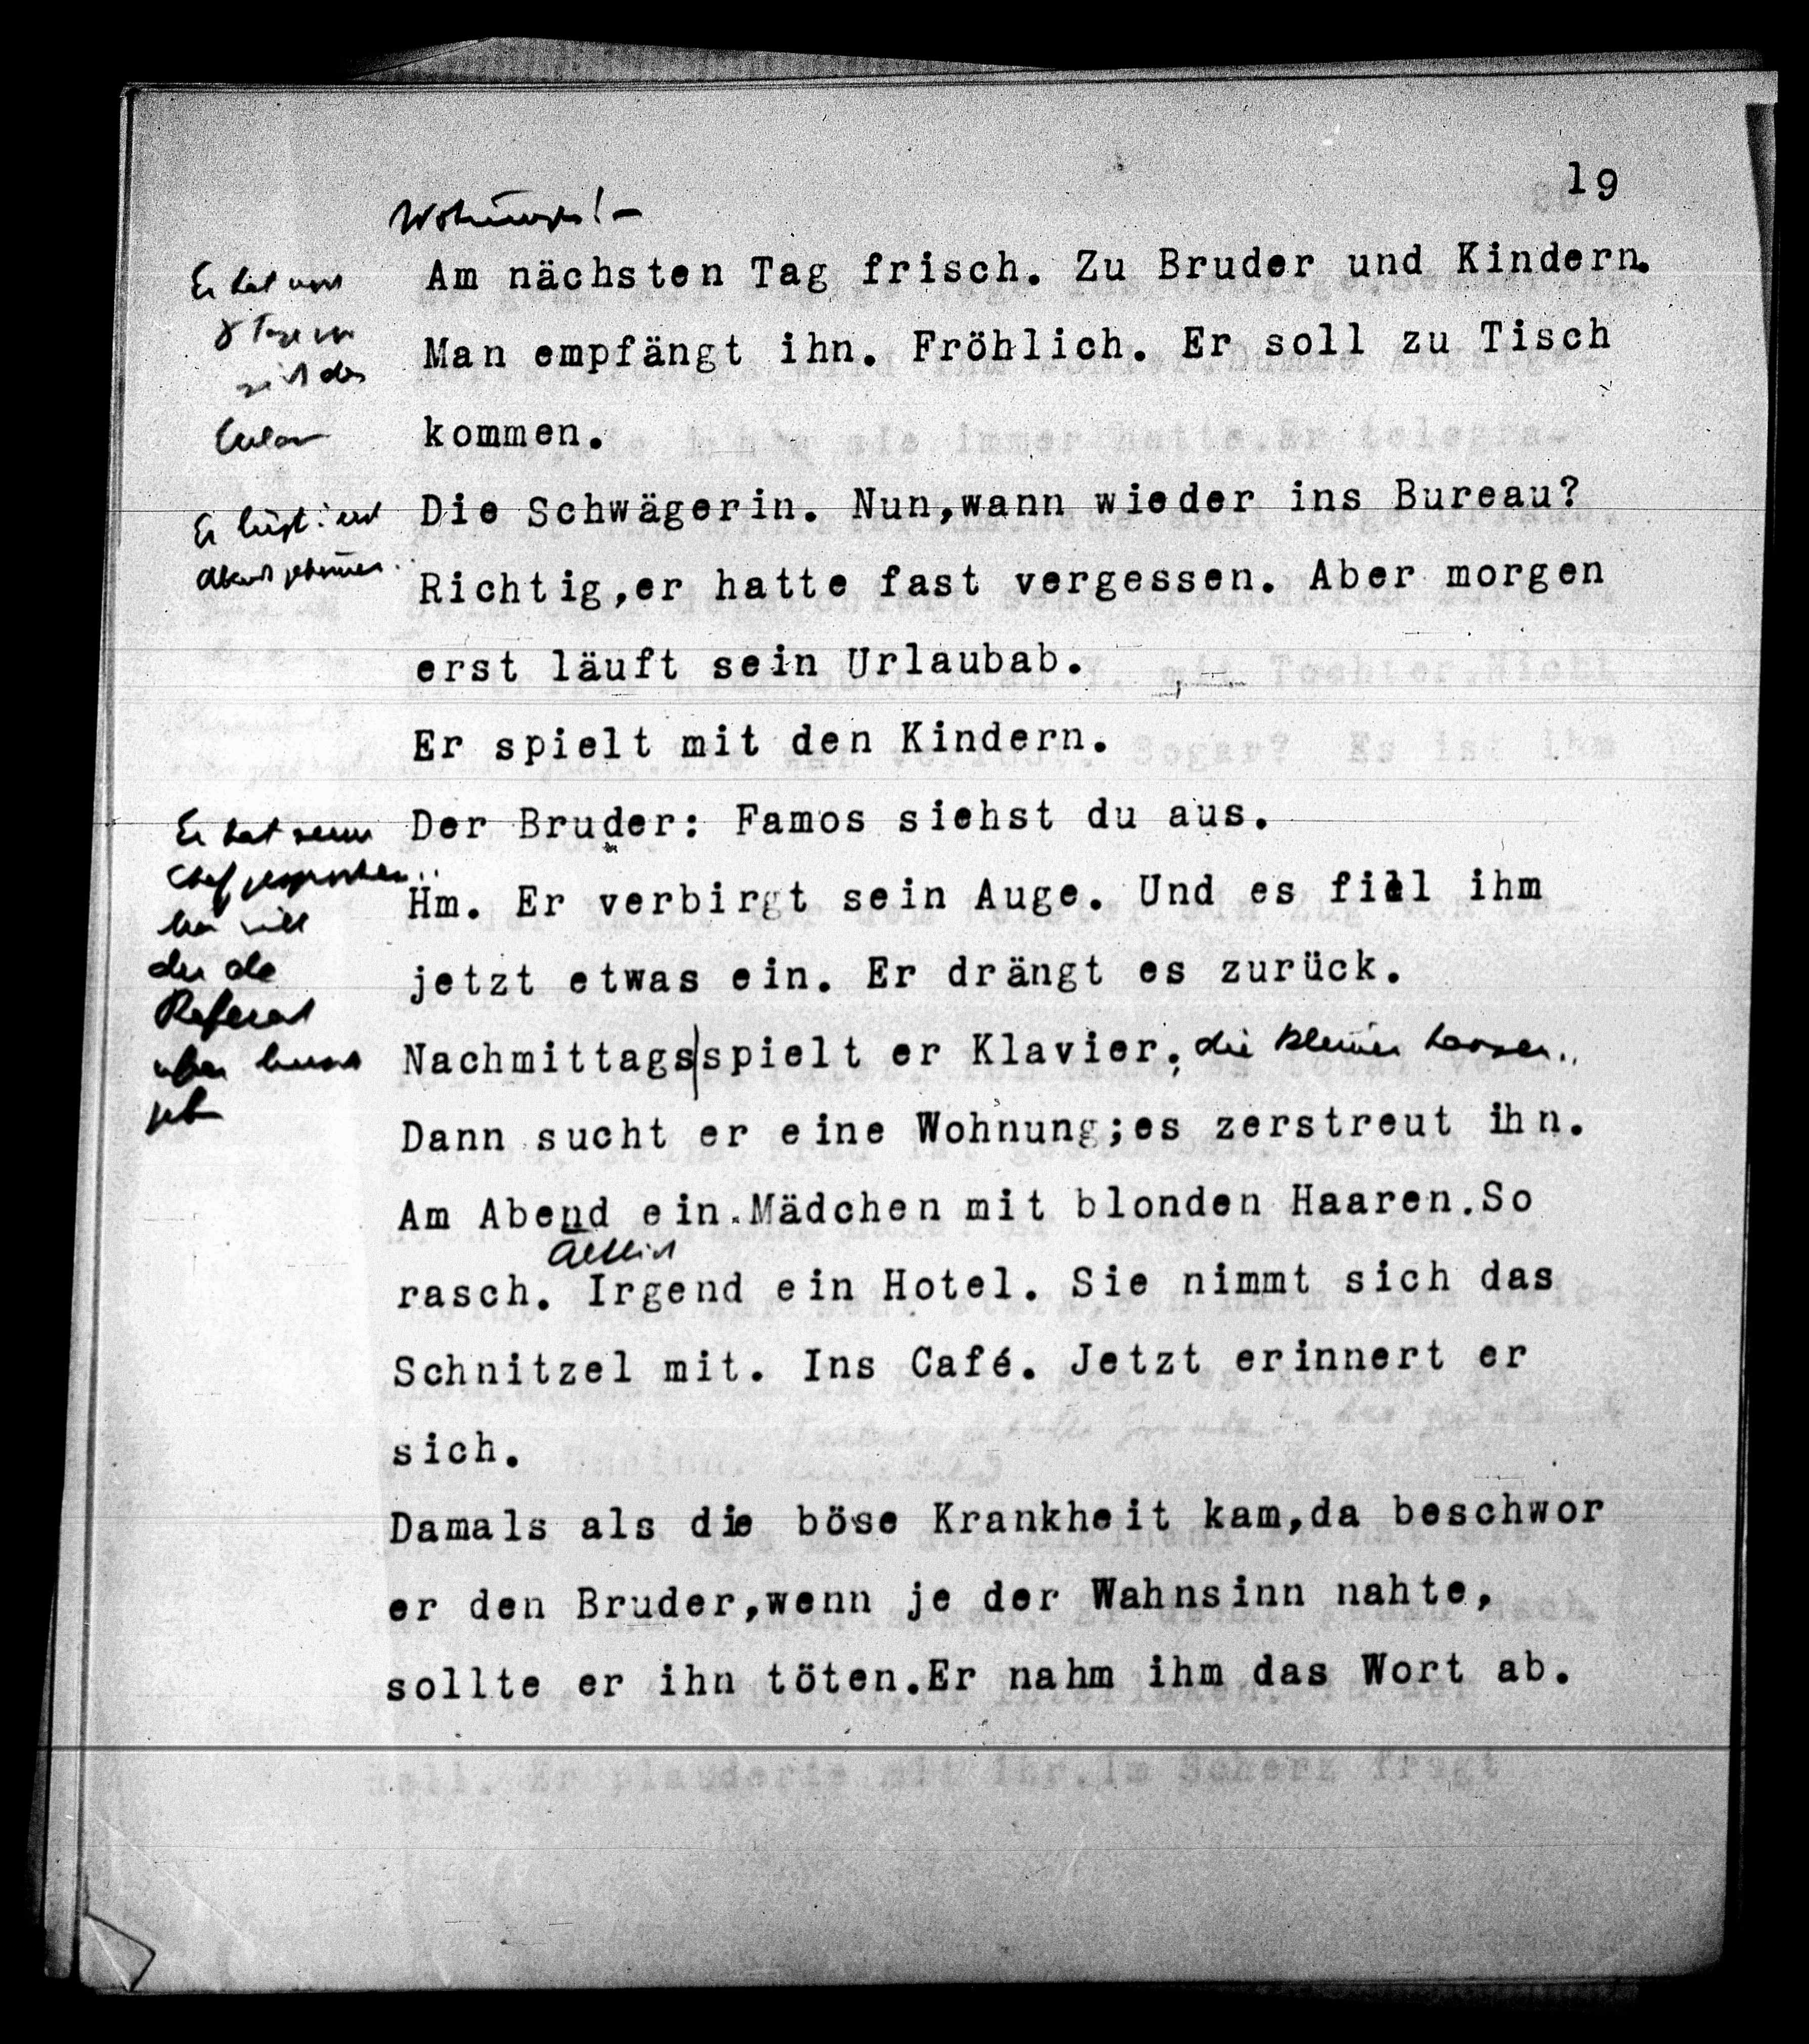 19
Er hat noch
8 Tage
Urlaub
Am nächsten Tag frisch. Zu Bruder und Kindern.
Man empfängt ihn. Fröhlich. Er soll zu Tisch
kommen.
Er lügt:
Die Schwägerin. Nun,wann wieder ins Bureau?
Richtig,er hatte fast vergessen. Aber morgen
erst läuft sein Urlaubab.
Er spielt mit den Kindern.
Er hat seinen
Chef gesprochen..
der will
Referat
Der Bruder: Famos siehst du aus.
Hm. Er verbirgt sein Auge. Und es fiel ihm
jetzt etwas ein. Er drängt es zurück.
Nachmittags|spielt er Klavier; die Kleinen tanzen..
Dann sucht er eine Wohnung;es zerstreut ihn.
Am Abend ein.Mädchen mit blonden Haaren.So
rasch. Irgend ein Hotel. Sie nimmt sich das
Schnitzel mit. Ins Café. Jetzt erinnert er
sich.
Damals als die böse Krankheit kam,da beschwor
er den Bruder,wenn je der Wahnsinn nahte,
sollte er ihn töten.Er nahm ihm das Wort ab.